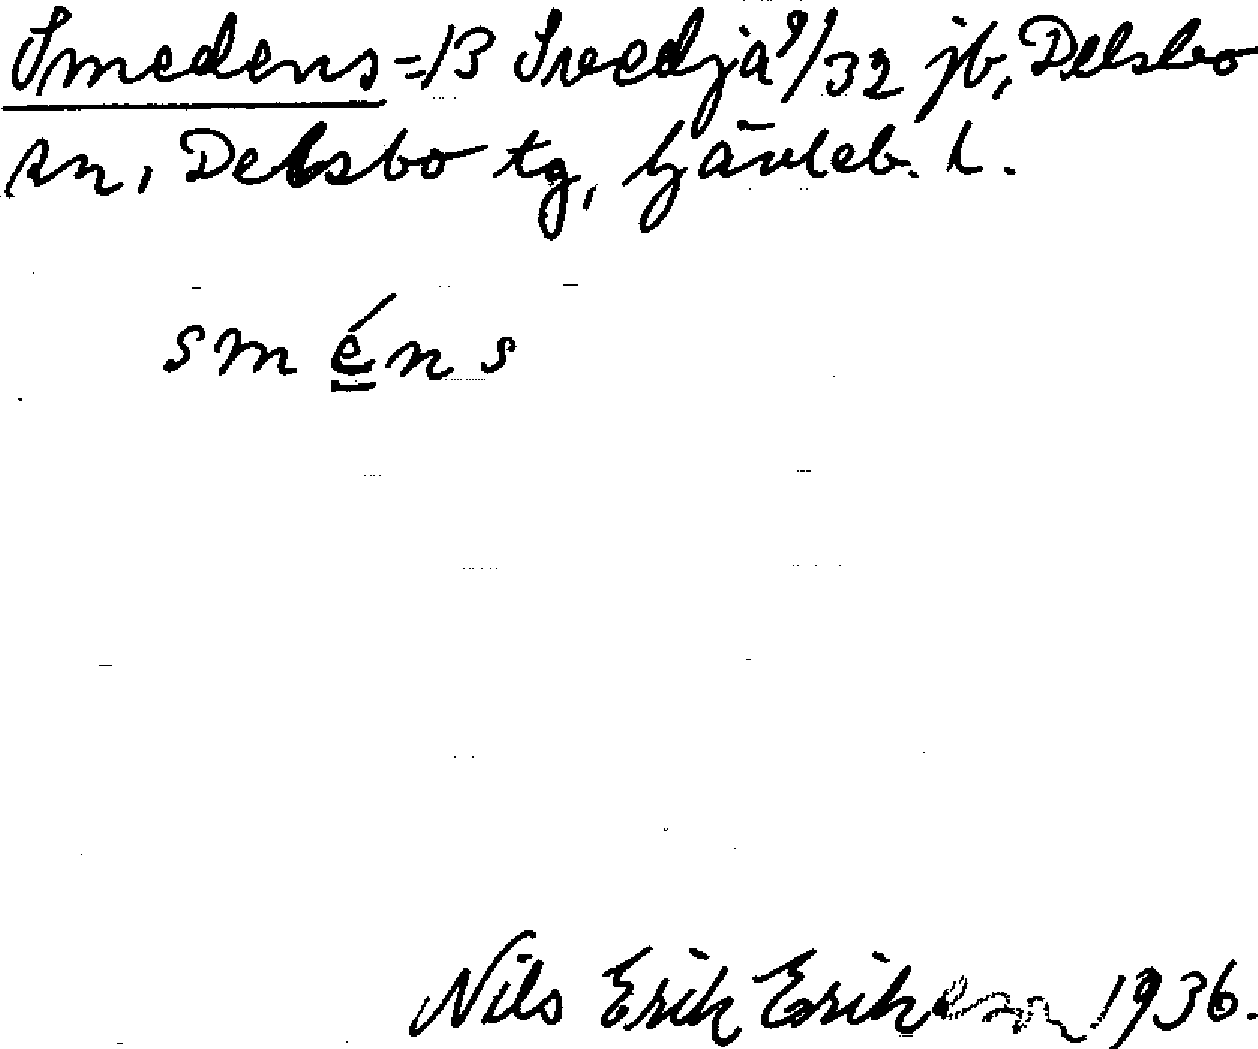 Smedens = 13 Svedja 9/32 jb, Delsbo
sn, Delsbo tg, Gävleb. l.
sméns
Nils Erik Eriksson 1936.